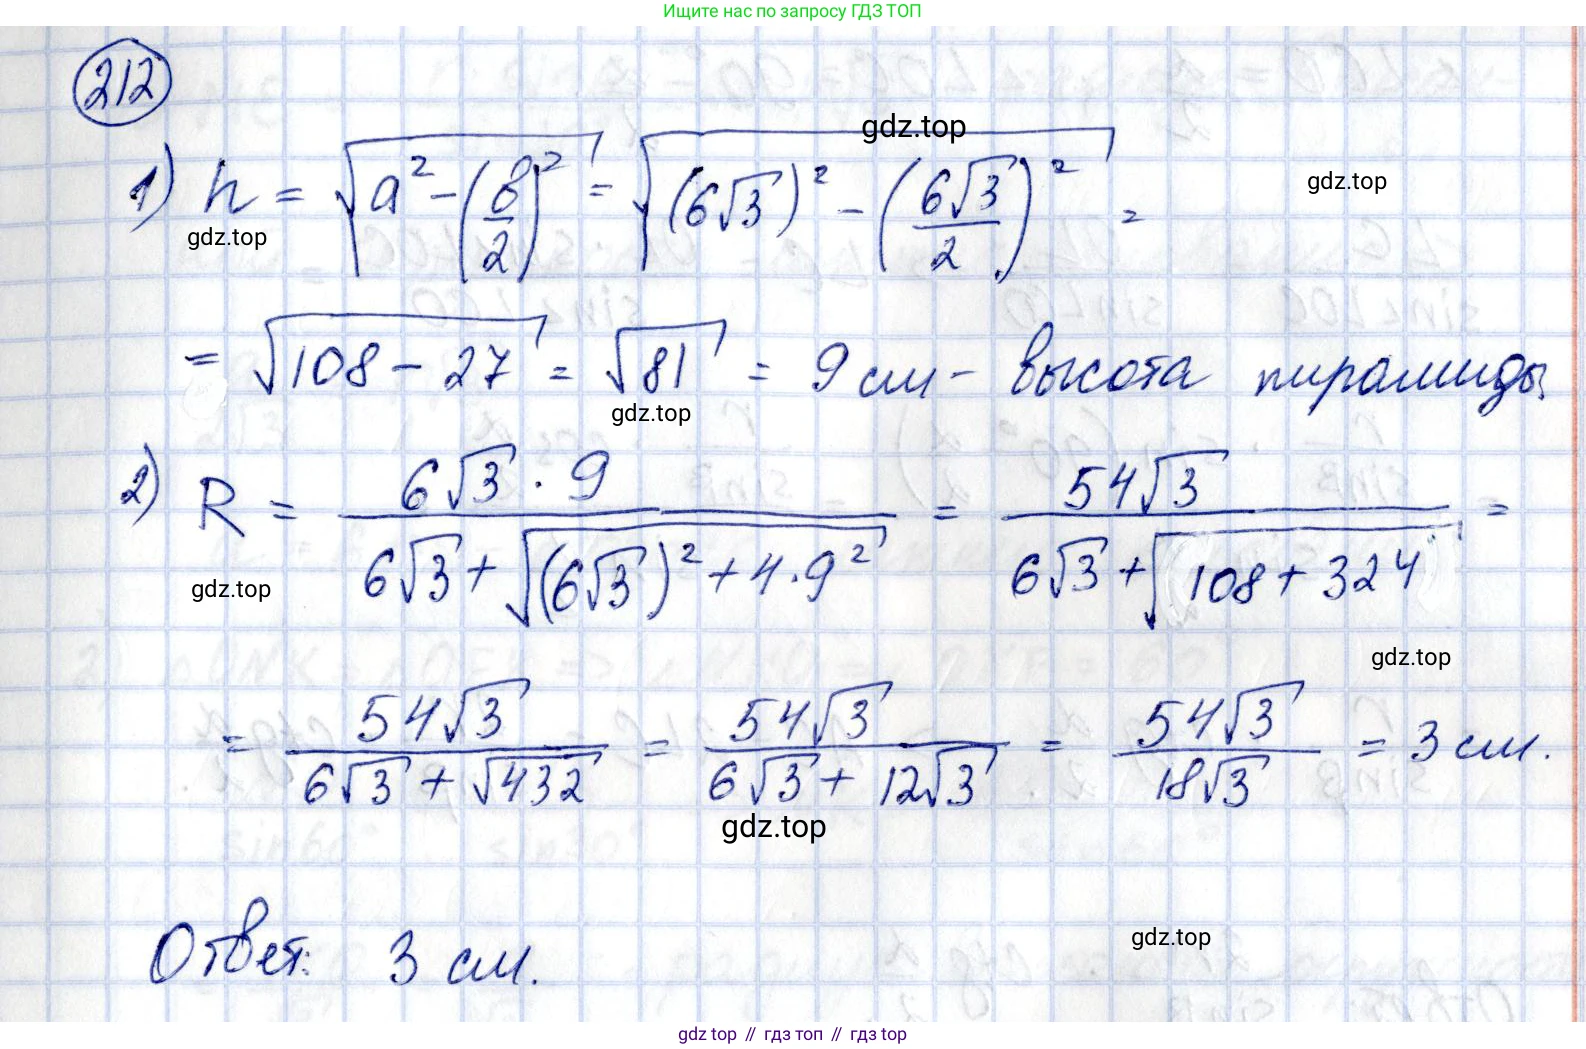 Ищите нас по запросу ГДЗ ТОП
212
gdz.top
1) h = √(a² - (в/2)²) = √((6√3)² - (6√3/2)²) =
gdz.top
gdz.top
= √(108 - 27) = √81 = 9 см - высота пирамиды
gdz.top
2) R = (6√3 · 9)/(6√3 + √((6√3)² + 4·9²)) = 54√3/(6√3 + √(108 + 324)) =
gdz.top
gdz.top
= 54√3/(6√3 + √432) = 54√3/(6√3 + 12√3) = 54√3/18√3 = 3 см.
gdz.top
Ответ: 3 см.
gdz.top
gdz top // гдз топ // гдз top